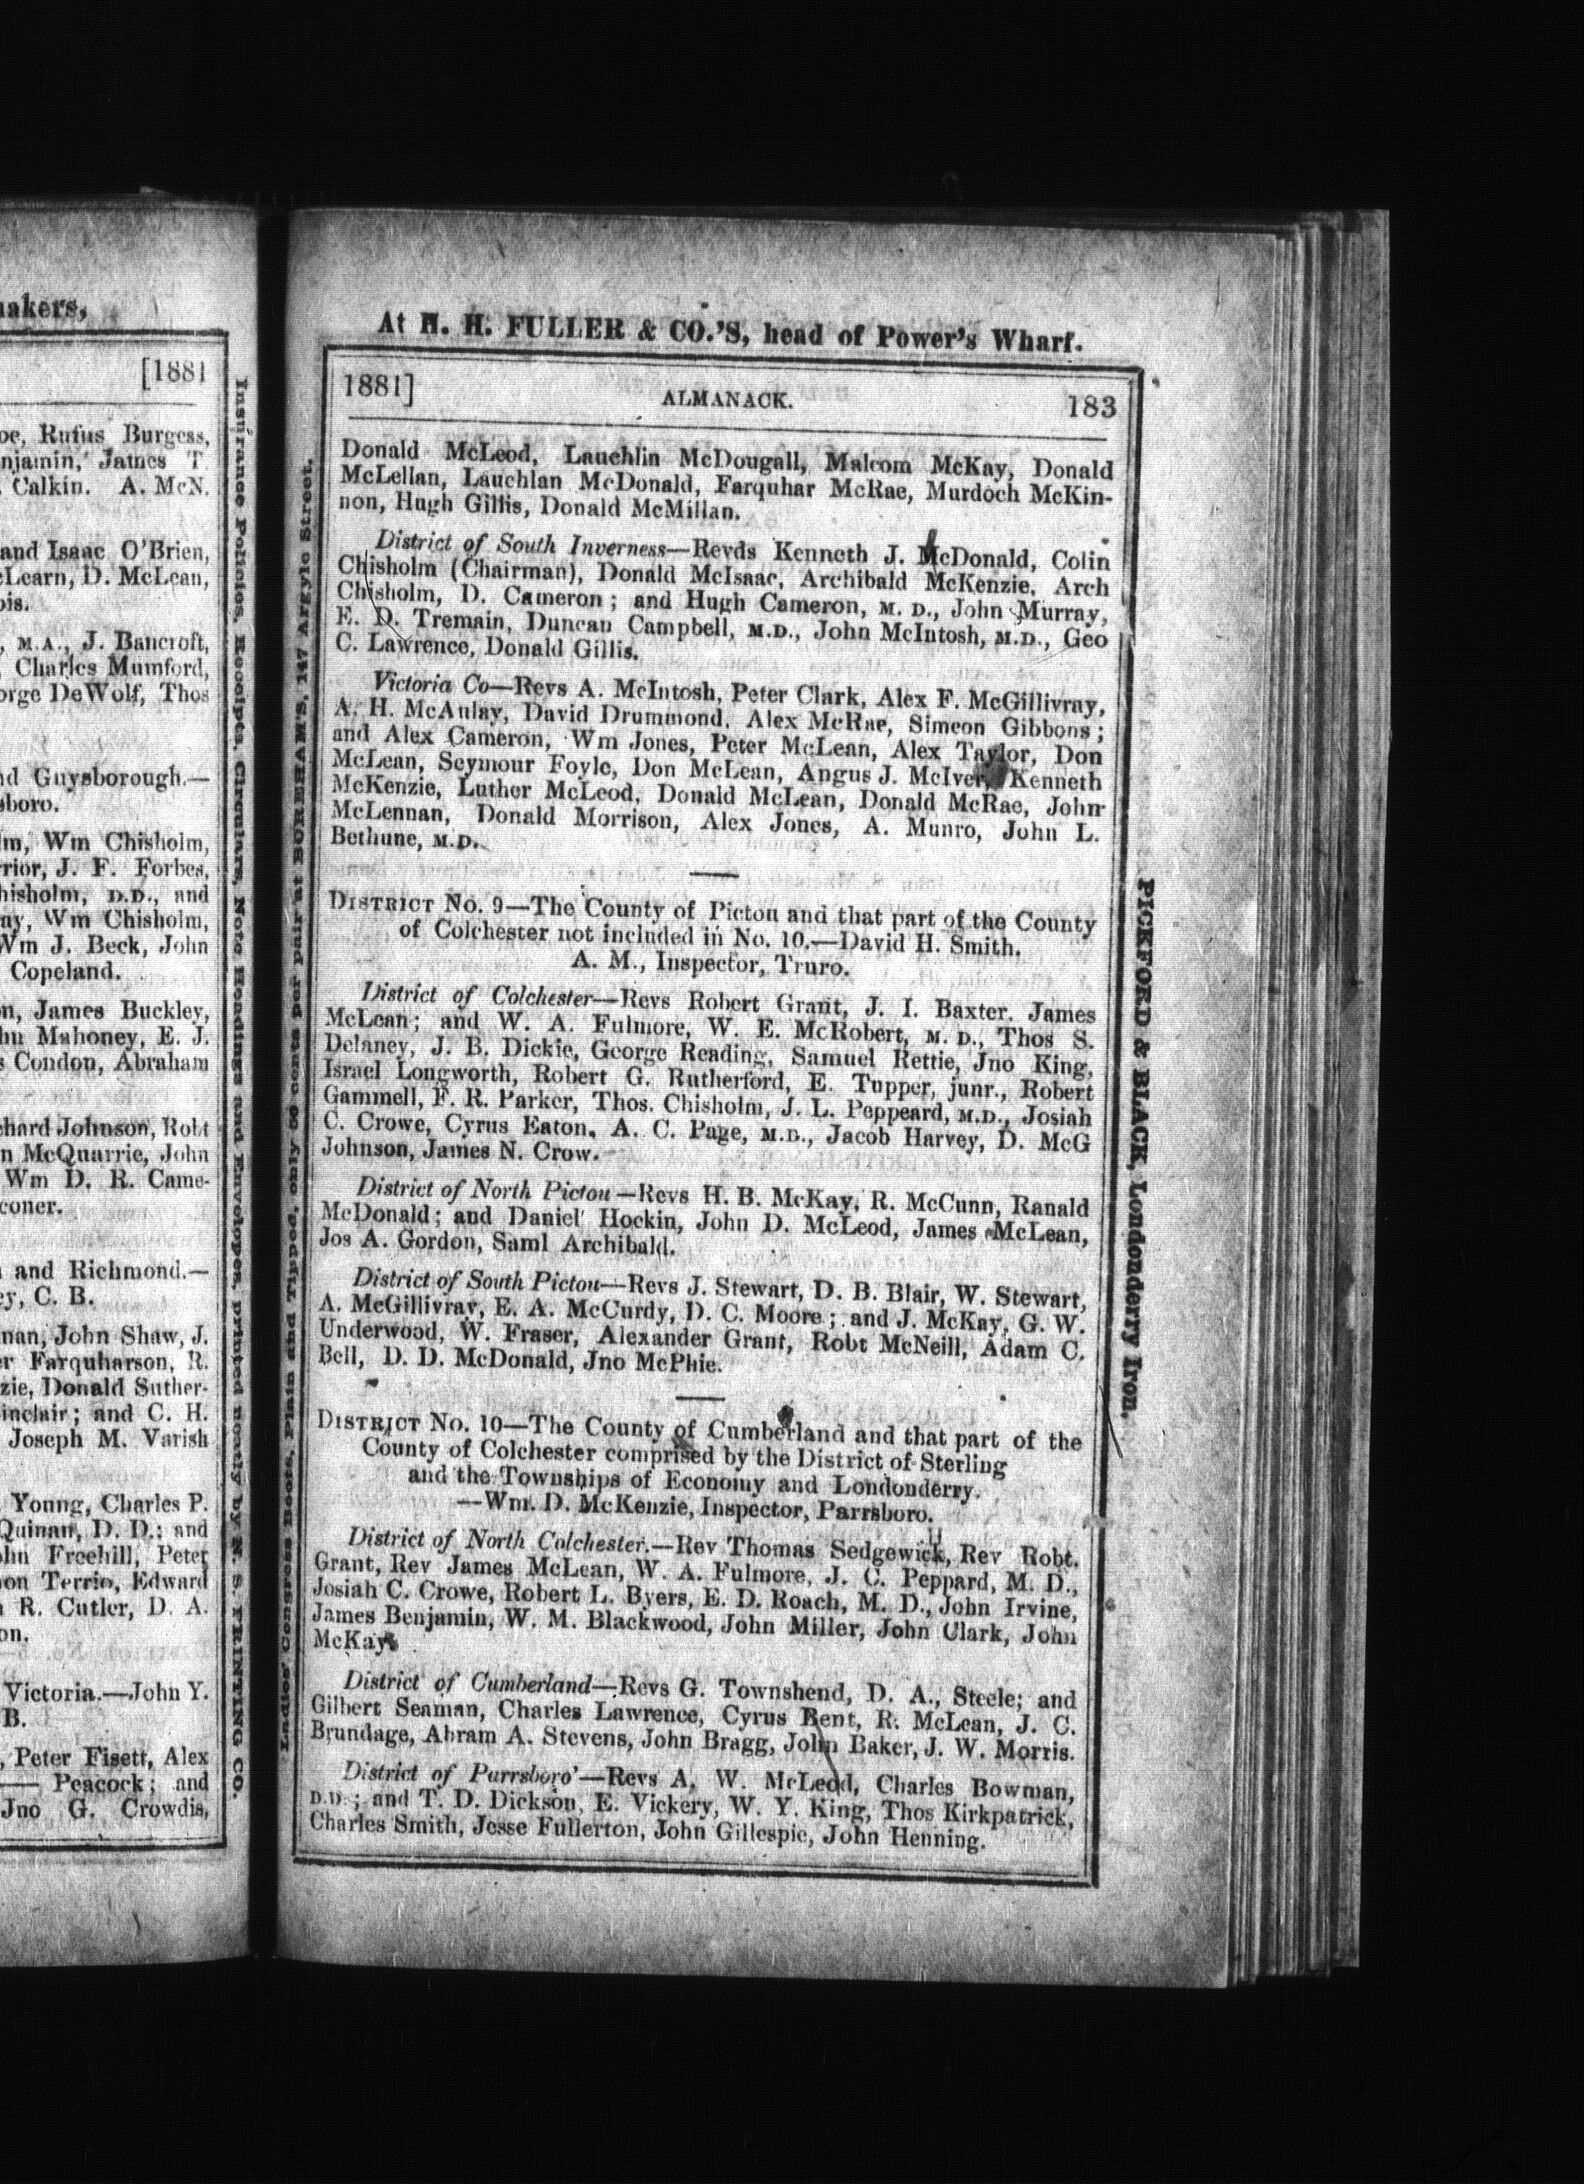 akers,
[1881
oe, Rufus Burgess,
njamin, James T
Calkin. A. McN.
and Isaac O'Brien,
cLearn, D. McLean,
ois.
, M.A., J. Bancroft,
Charles Mumford,
orge DeWolf, Thos
nd Guysborough.—
sboro.
lm, Wm Chisholm,
rrior, J. F. Forbes,
hisholm, D.D., and
ay, Wm Chisholm,
Wm J. Beck, John
Copeland.
n, James Buckley,
hn Mahoney, E. J.
s Condon, Abraham
chard Johnson, Robt
n McQuarrie, John
Wm D. R. Came-
coner.
and Richmond.—
ey, C. B.
nan, John Shaw, J.
er Farquharson, R.
zie, Donald Suther-
inclair; and C. H.
Joseph M. Varish
Young, Charles P.
Quinan, D. D.; and
ohn Freehill, Peter
on Terrio, Edward
R. Cutler, D. A.
on.
Victoria.—John Y.
B.
, Peter Fisett, Alex
—— Peacock; and
Jno G. Crowdis,
Insurance Policies, Receipts, Circulars, Note Headings and Envelopes, printed neatly by N. S. PRINTING CO.
Ladies' Congress Boots, Plain and Tipped, only 50 cents per pair at BOREHAM'S, 147 Argyle Street.
At H. H. FULLER & CO.'S, head of Power's Wharf.
1881] ALMANACK. 183
Donald McLeod, Lauchlin McDougall, Malcom McKay, Donald
McLellan, Lauchlan McDonald, Farquhar McRae, Murdoch McKin-
non, Hugh Gillis, Donald McMillan.
District of South Inverness—Revds Kenneth J. McDonald, Colin
Chisholm (Chairman), Donald McIsaac, Archibald McKenzie, Arch
Chisholm, D. Cameron; and Hugh Cameron, M. D., John Murray,
E. D. Tremain, Duncan Campbell, M.D., John McIntosh, M.D., Geo
C. Lawrence, Donald Gillis.
Victoria Co—Revs A. McIntosh, Peter Clark, Alex F. McGillivray,
A. H. McAulay, David Drummond, Alex McRae, Simeon Gibbons;
and Alex Cameron, Wm Jones, Peter McLean, Alex Taylor, Don
McLean, Seymour Foyle, Don McLean, Angus J. McIver, Kenneth
McKenzie, Luther McLeod, Donald McLean, Donald McRae, John
McLennan, Donald Morrison, Alex Jones, A. Munro, John L.
Bethune, M.D.
DISTRICT No. 9—The County of Pictou and that part of the County
of Colchester not included in No. 10.—David H. Smith.
A. M., Inspector, Truro.
District of Colchester—Revs Robert Grant, J. I. Baxter. James
McLean; and W. A. Fulmore, W. E. McRobert, M. D., Thos S.
Delaney, J. B. Dickie, George Reading, Samuel Rettie, Jno King,
Israel Longworth, Robert G. Rutherford, E. Tupper, junr., Robert
Gammell, F. R. Parker, Thos. Chisholm, J. L. Peppeard, M.D., Josiah
C. Crowe, Cyrus Eaton, A. C. Page, M.D., Jacob Harvey, D. McG
Johnson, James N. Crow.
District of North Pictou—Revs H. B. McKay, R. McCunn, Ranald
McDonald; and Daniel Hockin, John D. McLeod, James McLean,
Jos A. Gordon, Saml Archibald.
District of South Pictou—Revs J. Stewart, D. B. Blair, W. Stewart,
A. McGillivray, E. A. McCurdy, D. C. Moore; and J. McKay, G. W.
Underwood, W. Fraser, Alexander Grant, Robt McNeill, Adam C.
Bell, D. D. McDonald, Jno McPhie.
DISTRICT No. 10—The County of Cumberland and that part of the
County of Colchester comprised by the District of Sterling
and the Townships of Economy and Londonderry.
—Wm. D. McKenzie, Inspector, Parrsboro.
District of North Colchester.—Rev Thomas Sedgewick, Rev Robt.
Grant, Rev James McLean, W. A. Fulmore, J. C. Peppard, M. D.,
Josiah C. Crowe, Robert L. Byers, E. D. Roach, M. D., John Irvine,
James Benjamin, W. M. Blackwood, John Miller, John Clark, John
McKay.
District of Cumberland—Revs G. Townshend, D. A., Steele; and
Gilbert Seaman, Charles Lawrence, Cyrus Bent, R. McLean, J. C.
Brundage, Abram A. Stevens, John Bragg, John Baker, J. W. Morris.
District of Parrsboro'—Revs A. W. McLeod, Charles Bowman,
D.D.; and T. D. Dickson, E. Vickery, W. Y. King, Thos Kirkpatrick,
Charles Smith, Jesse Fullerton, John Gillespie, John Henning.
PICKFORD & BLACK, Londonderry Iron.